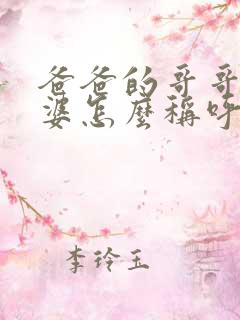 爸爸的哥哥
婆怎麼稱呼
李玲玉